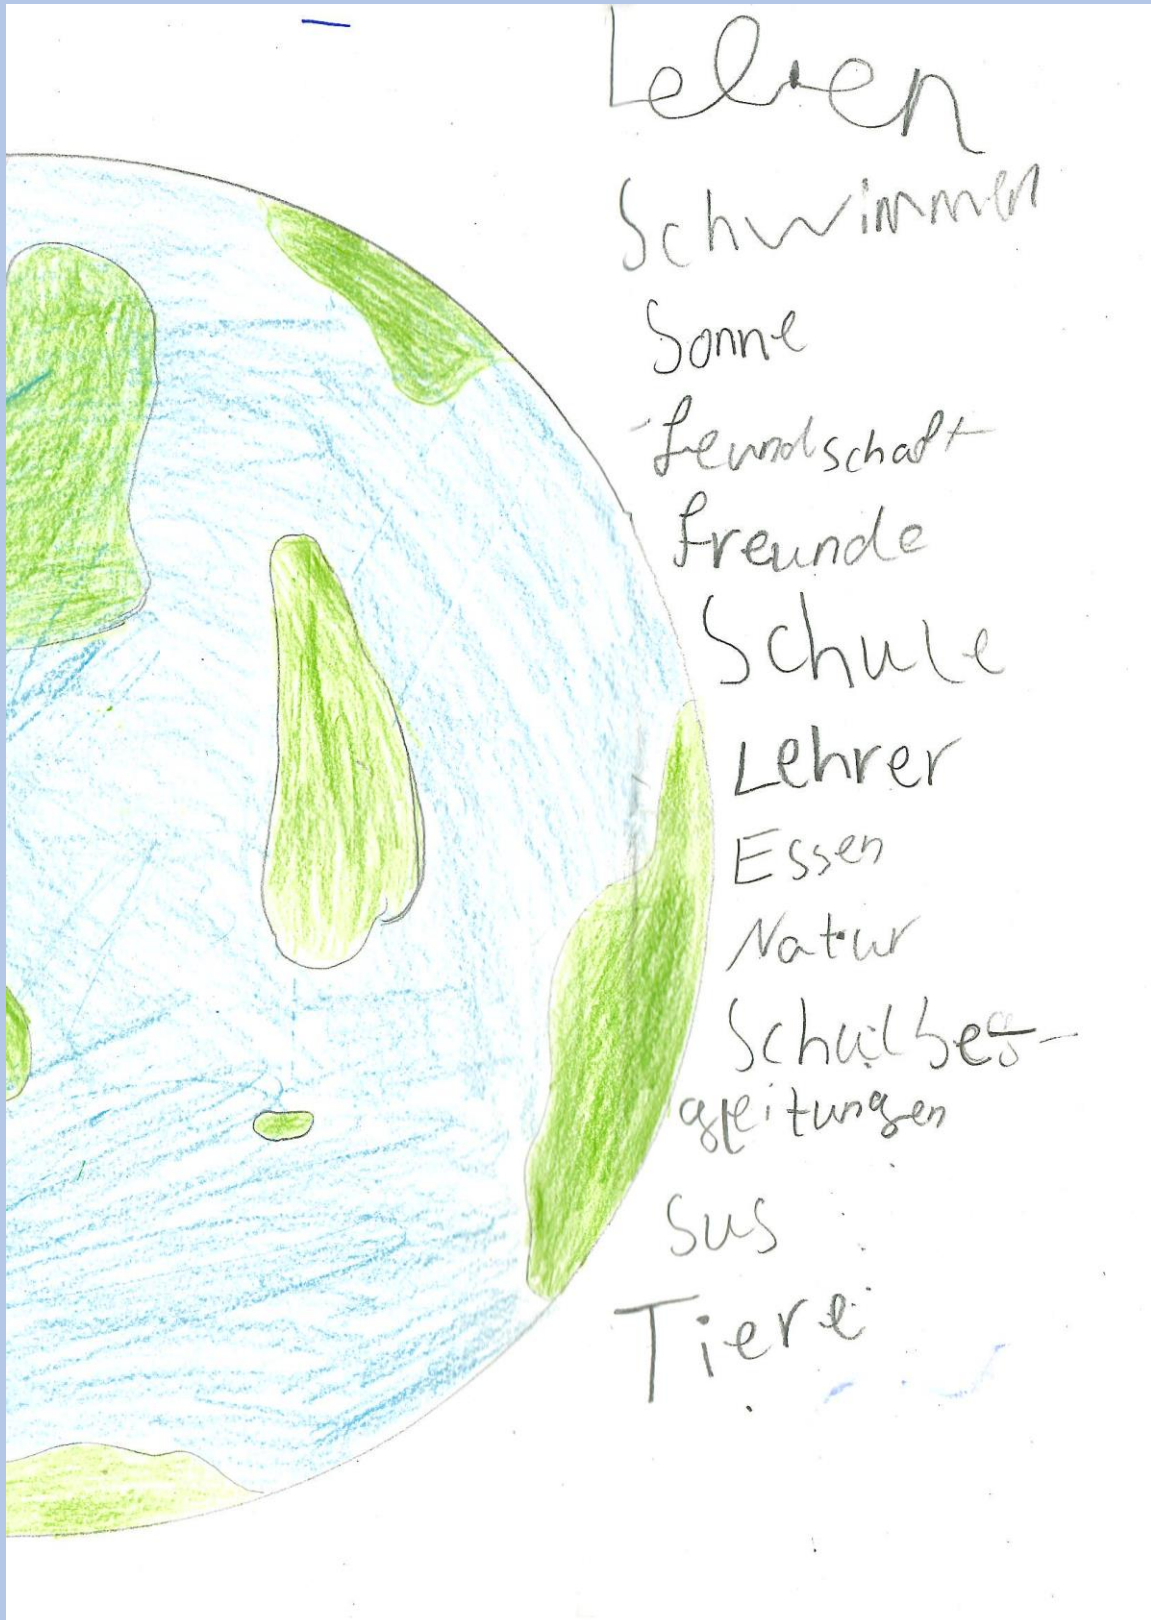 Leben
Schwimmen
Sonne
feundschaft
freunde
Schule
Lehrer
Essen
Natur
Schulbeg-
gleitungen
Sus
Tiere